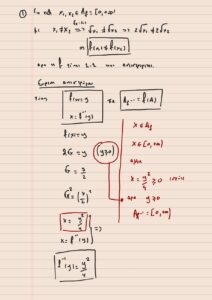 ① Για κάθε x₁, x₂ ∈ A_f = [0,+∞)
με x₁ ≠ x₂ => √x₁ ≠ √x₂ => 2√x₁ ≠ 2√x₂
=> f(x₁) ≠ f(x₂)
άρα η f είναι 1-1 και αντιστρέφεται.
Εύρεση αντιστρόφου
f(x)=y
x=f⁻¹(y)
A_f⁻¹ = f(A)
f(x)=y
2√x=y
y≥0
√x = y/2
(√x)² = (y/2)²
x = y²/4
x=f⁻¹(y)
=>
f⁻¹(y) = y²/4
x ∈ A_f
x ∈ [0,+∞)
άρα
x = y²/4 ≥0
άρα y≥0
A_f⁻¹ = [0,+∞)